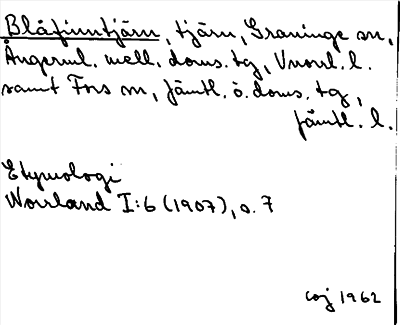 Blåfinntjärn, tjärn, Graninge sn,
Ångerml. mell. doms. tg, Vnorrl. l.
samt Fors sn, Jämtl. ö. doms. tg,
Jämtl. l.
Etymologi
Norrland I:6 (1907), s. 7
coj 1962